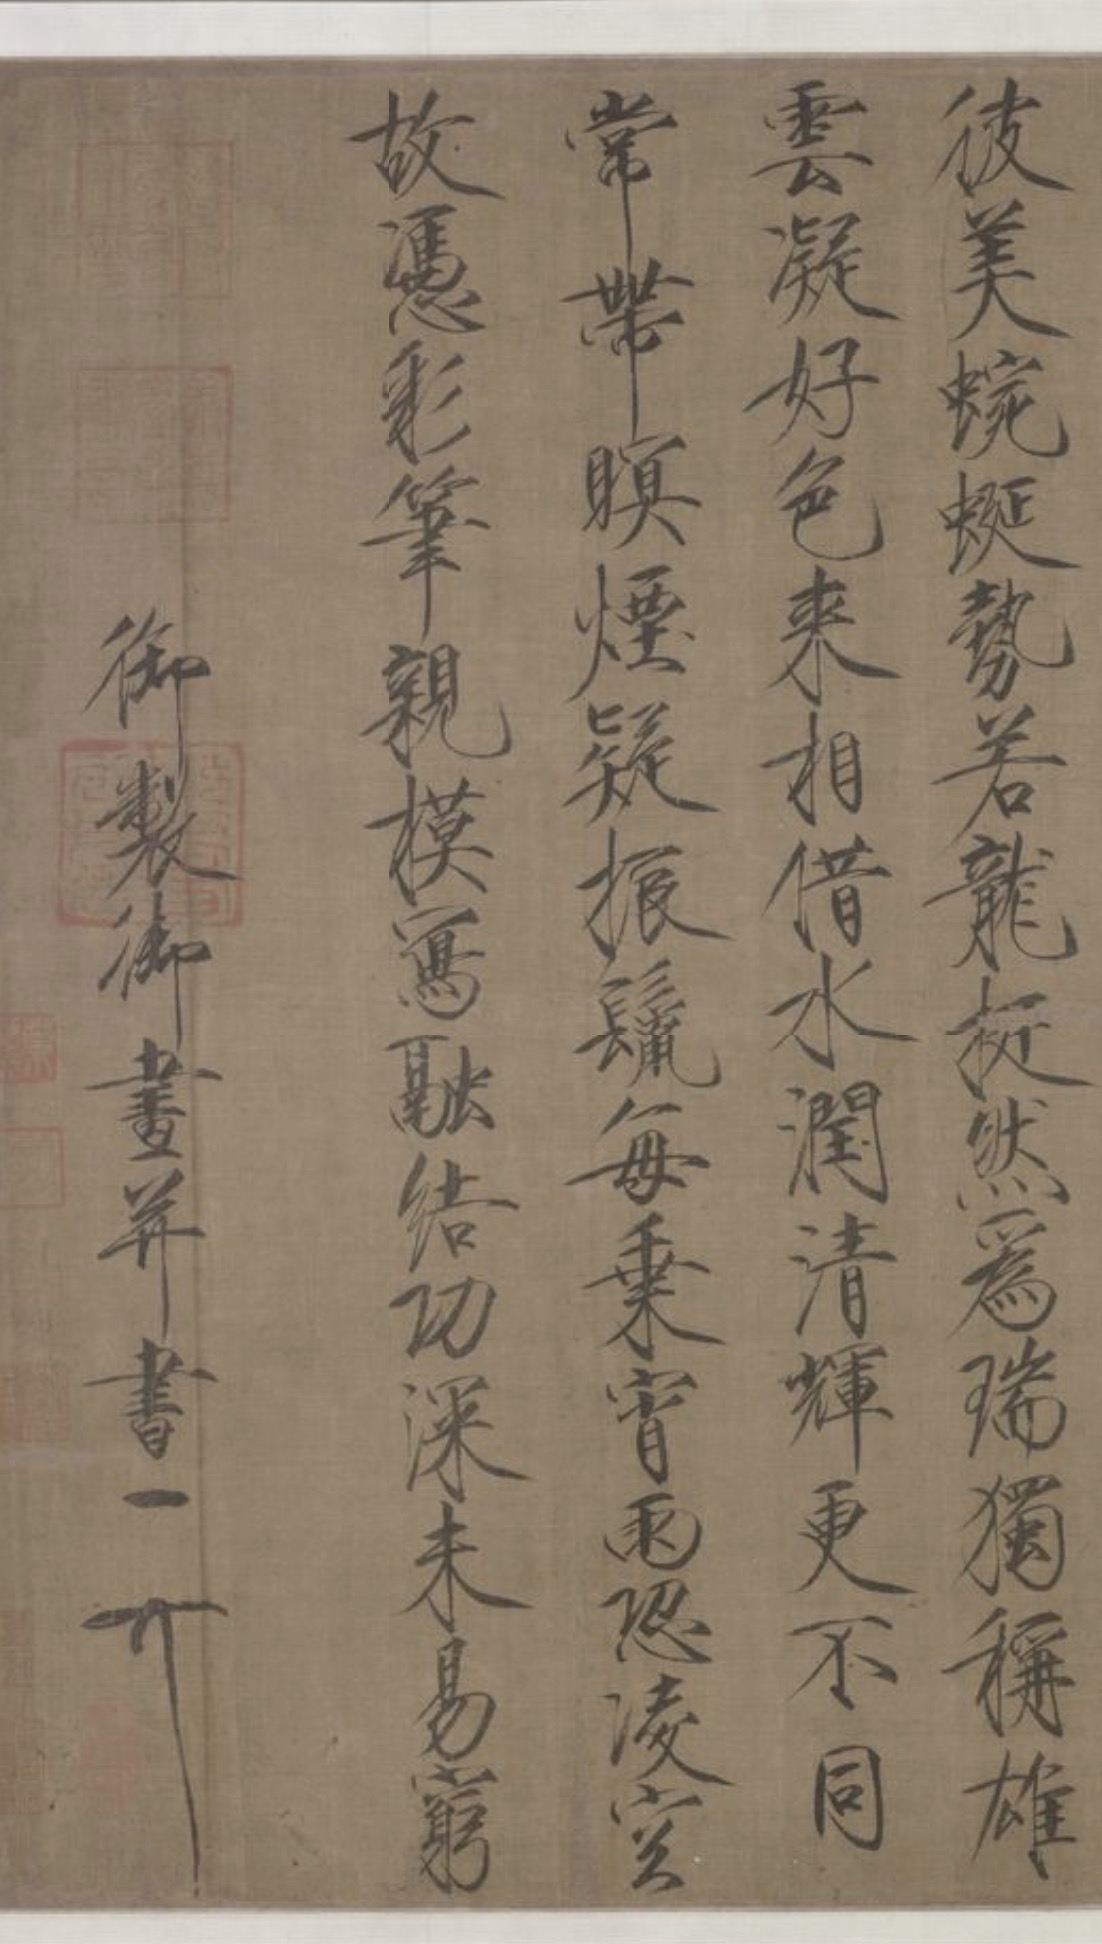 彼美蜿蜒勢若龍挺然為瑞獨稱雄
雲凝好色來相借水潤清輝更不同
常帶瞑煙疑振鬣每乘宵雨恐凌空
故憑彩筆親模寫融結功深未易窮
御製御畫并書